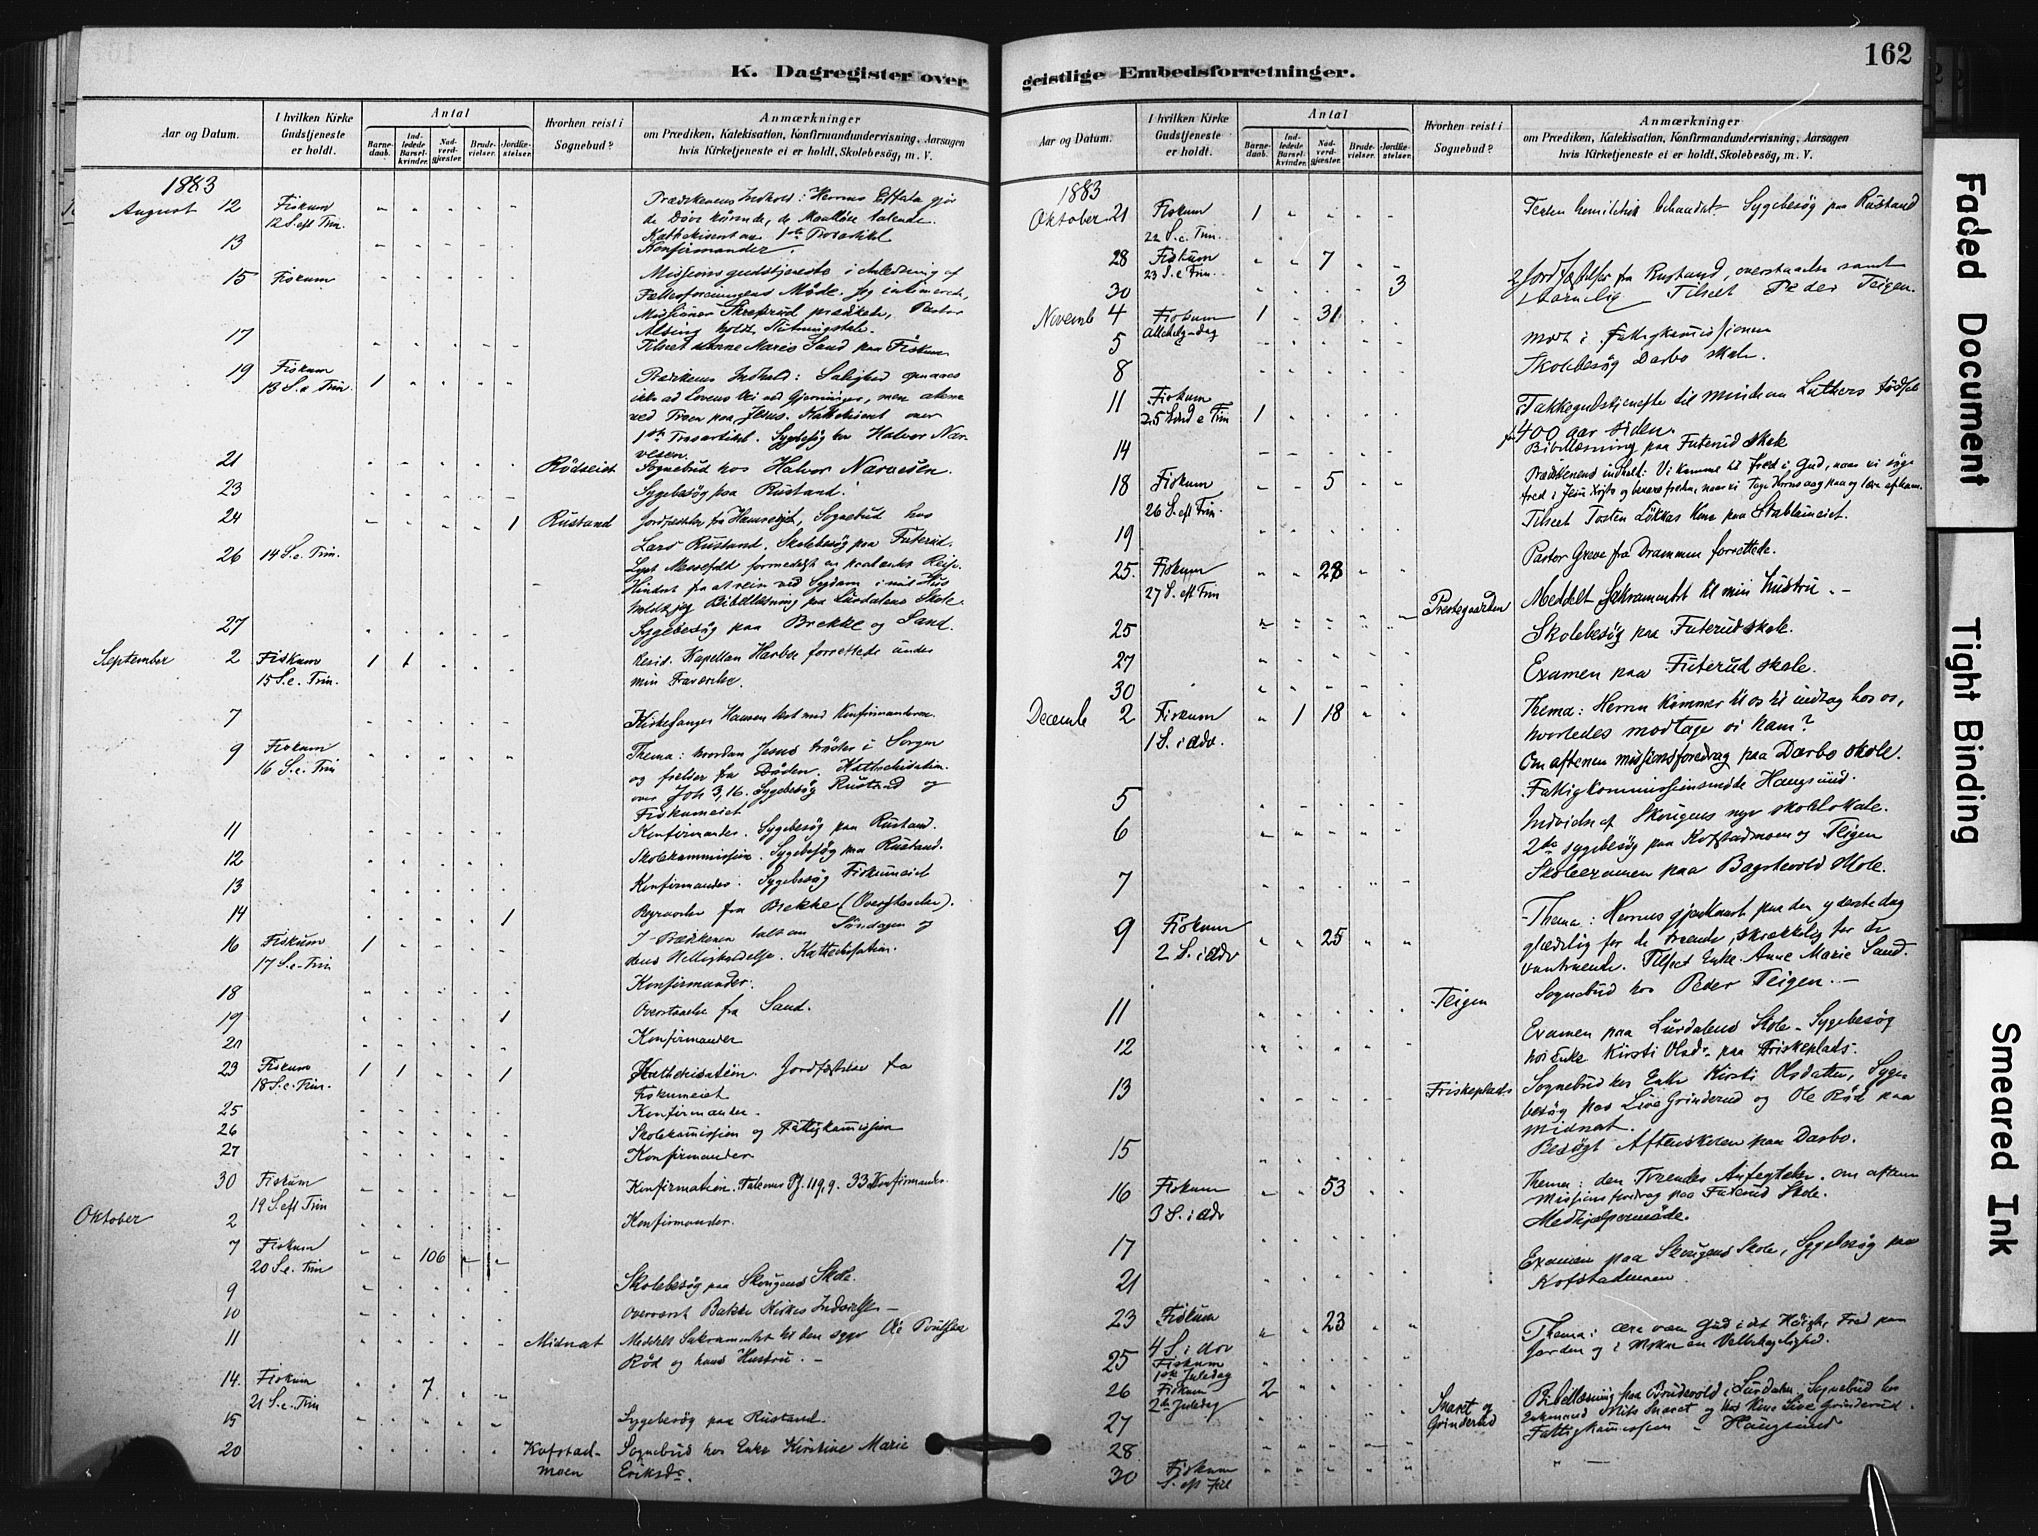 162
K. Dagregister over geistlige Embedsforretninger.
Aar og Datum.
I hvilken Kirke Gudstjeneste er holdt.
Antal
Barne-daab.
Ind-ledede Barsel-kvinder.
Nad-verd-gjæster.
Brude-vielser.
Jordfæ-stelser.
Hvorhen reist i Sognebud?
Anmærkninger
om Prædiken, Katekisation, Konfirmandundervisning, Aarsagen
hvis Kirketjeneste ei er holdt, Skolebesøg, m. V.
1883
August 12 Fiskum Prædikenens Indhold: Herrens Effata gjør
12 S. eft Trin. de Døve hørende, de Maalløse talende.
13 Konfirmander.
15 Fiskum Missionsgudstjeneste i Anledning af
Møde. Jeg
Missionær Skrefsrud prædikede, Pastor
holdt Slutningstale.
17 Tilseet Anne Marie Sand paa Fiskum
19 Fiskum 1 Prædikenens Indhold: Salighed opnaaes
13 S. e Trin. ikke ad Lovens Vei ved Gjerninger, men alene
ved Troen paa Jesus. over
1ste Trosartikel. Sygebesøg hos Halvor Nar-
vesen.
21 Rødseiet Sognebud hos Halvor Narvesen.
23 Sygebesøg paa Rustand.
24 1 Rustand Sognebud hos
Lars Rustand. Skolebesøg paa Futerud.
26 14 S. e. Trin.
holdt jeg Bibellæsning paa Lurdalens Skole.
27 Sygebesøg paa Brekke og Sand.
September 2 Fiskum 1 1 Resid. Kapellan Harboe forrettede under
15 S. e. Trin. min Fraværelse.
7 Kirkesanger Hansen læst med Konfirmanderne.
9 Fiskum Thema: hvordan Jesus trøster i Sorgen
16 S. e. Trin og frelser fra Døden.
over Joh 3,16. Sygebesøg Rustand og
Fiskumeiet
11 Konfirmander. Sygebesøg paa Rustand.
12 Skolekommission. Sygebesøg paa Rustand.
13 Konfirmander. Sygebesøg Fiskumeiet
14 1 fra Brekke (Overstaaelse).
16 Fiskum 1 I Prædikenen talt om Søndagen og
17 S. e. Trin dens Helligholdelse.
18 Konfirmander.
19 1 Overstaaelse fra Sand.
21 Konfirmander
23 Fiskum 1 1 1 Jordfæstelse fra
18 S. e. Trin. Fiskumeiet
25 Konfirmander.
26 Skolekommission og Fattigkommission
27 Konfirmander
30 Fiskum Konfirmation. Ps. 119,9. 33 Konfirmander.
19 S. eft Trin
Oktober 2 Konfirmander.
7 Fiskum 106
20 S. e. Trin
9 Skolebesøg paa Skougens Skole.
10 Overværet Bakke Kirkes Indvielse –
11 Midnat Meddelt Sakramentet til den syge Ole
Rød og hans Hustru. –
14. Fiskum 7
21 S. e. Trin
15 Sygebesøg paa Rustand
20 Kofstad- Sognebud hos Enke Kirstine Marie
moen Eriksdr.
Aar og Datum.
I hvilken Kirke Gudstjeneste er holdt.
Antal
Barne-daab.
Ind-ledede Barsel-kvinder.
Nad-verd-gjæster.
Brude-vielser.
Jordfæ-stelser.
Hvorhen reist i Sognebud?
Anmærkninger
om Prædiken, Katekisation, Konfirmandundervisning, Aarsagen
hvis Kirketjeneste ei er holdt, Skolebesøg, m. V.
1883
Oktober 21 Fiskum 1 Texten homiletisk behandlet – Sygebesøg paa Rustand
22 S. e. Trin.
28 Fiskum 7
23 S. e Trin.
30 3 2 Jordfæstelser fra Rustand, overstaaelse samt
1 barnelig Tilseet Peder Teigen.
Novemb 4 Fiskum 1 31
Allehelg-dag
5 Mødt i Fattigkommissionen
8 Skolebesøg Darbo skole.
11 Fiskum 1 Takkegudstjeneste til minde om Luthers fødsel
25 Sønd e Trin for 400 aar siden.
14 Bibellæsning paa Futerud skole
18 Fiskum 5 Prædikenens indhold: Vi komme til fred i Gud, naar vi søge
26 S. eft Trin.
19 Tilseet Kone paa Stableneiet.
25. Fiskum 28 Pastor Greve fra Drammen forrettede.
27 S. eft Trin
25 Prestegaarden Meddelt Sakramentet til min hustru. –
27 Skolebesøg paa Futerud skole.
30 Examen paa Futerud skole.
Decemb 2 Fiskum 1 18 Thema: Herren kommer til os til indtog hos os,
1 S. i adv. hvorledes modtage vi ham?
Om aftenen missionsforedrag paa Darbo skole.
5 Fattigkommissionsmøde Haugsund.
6 Indvielse af Skougens nye skolelokale.
2de sygebesøg paa Kofstadmoen og Teigen
7 Skoleexamen paa Bagstevold Skole.
9 Fiskum 25 Thema: Herrens gjenkomst paa den yderste dag
2 S. i adv glædelig for de troende, skrækkelig for de
vantroende. Tilseet Enke Anne Marie Sand.
11 Teigen Sognebud hos Peder Teigen. –
12 Examen paa Lurdalens Skole – Sygebesøg
hos Enke Kirsti Olsdr. paa Friskeplads.
13 Friskeplads Sognebud hos Enke Kirsti Olsdatter, Syge-
besøg hos Live Grinderud og Ole Rød paa
Midnat.
15 Besøgt Aftenskolen paa Darbo.
16 Fiskum 53 Thema: den Troendes Anfegtelser. om aftenen
3 S. i adv missionsforedrag paa Futerud Skole.
17 Medhjælpermøde.
21 Examen paa Skougens Skole, Sygebesøg paa
Kofstadmoen.
23 Fiskum 23 Thema: ære være Gud i det Høieste, Fred paa
4 S. i adv Jorden og i Mennesker Velbehagelighed.
25 Fiskum
1ste Juledag
26 Fiskum 2
2den Juledag
27 Snaret og Grinderud Bibellæsning paa i Lurdalen Sognebud hos
Enkemand Nils Snaret og hos Kone Live Grinderud.
28 Fattigkommission – Haugsund
30 Fiskum
S. eft Jul
Faded Document
Tight Binding
Smeared Ink